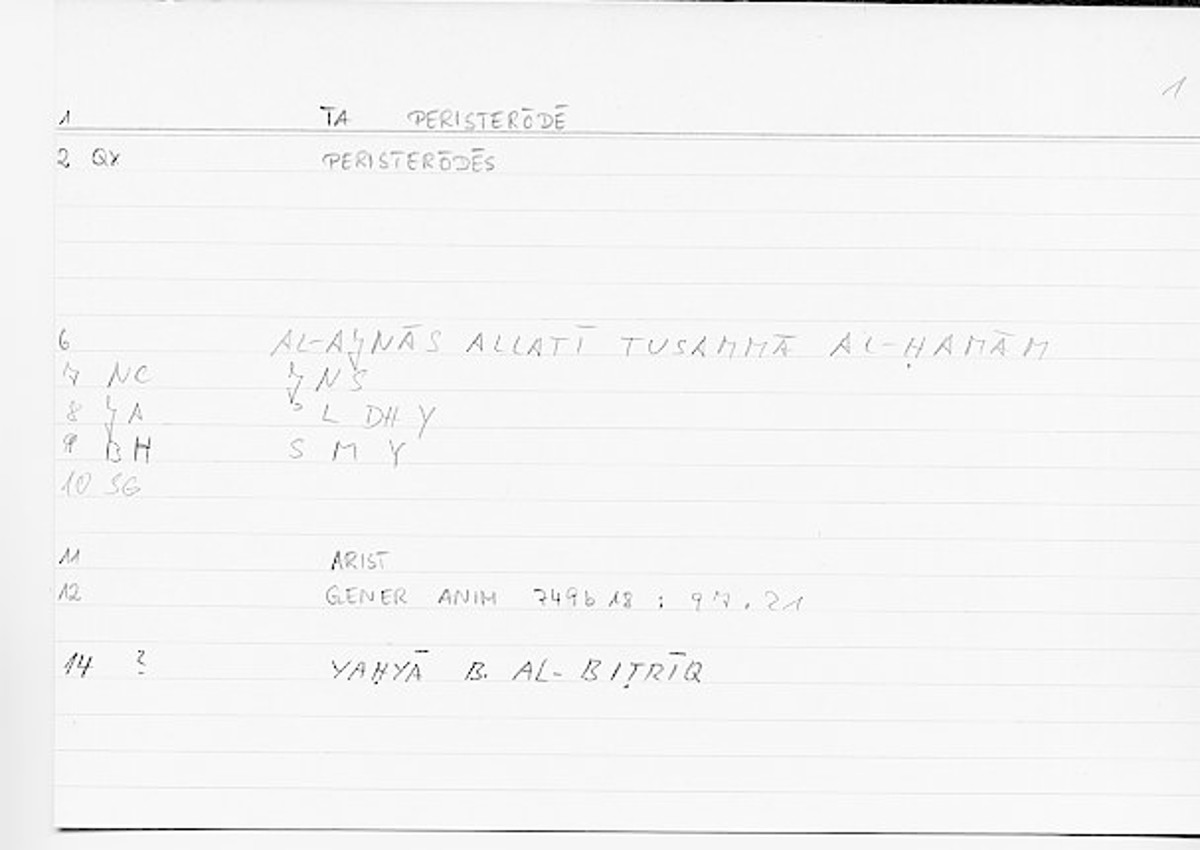 1
1 TA PERISTERŌDĒ
2 QX PERISTERŌDĒS
6 AL-AǧNĀS ALLATĪ TUSAMMĀ AL-ḤAMĀM
7 NC ǧ N S
8 L DH Y
9 BH S M Y
10 SG
11 ARIST
12 GENER ANIM 749b18 : 97.21
14 ? YAḤYĀ B. AL-BIṬRĪQ